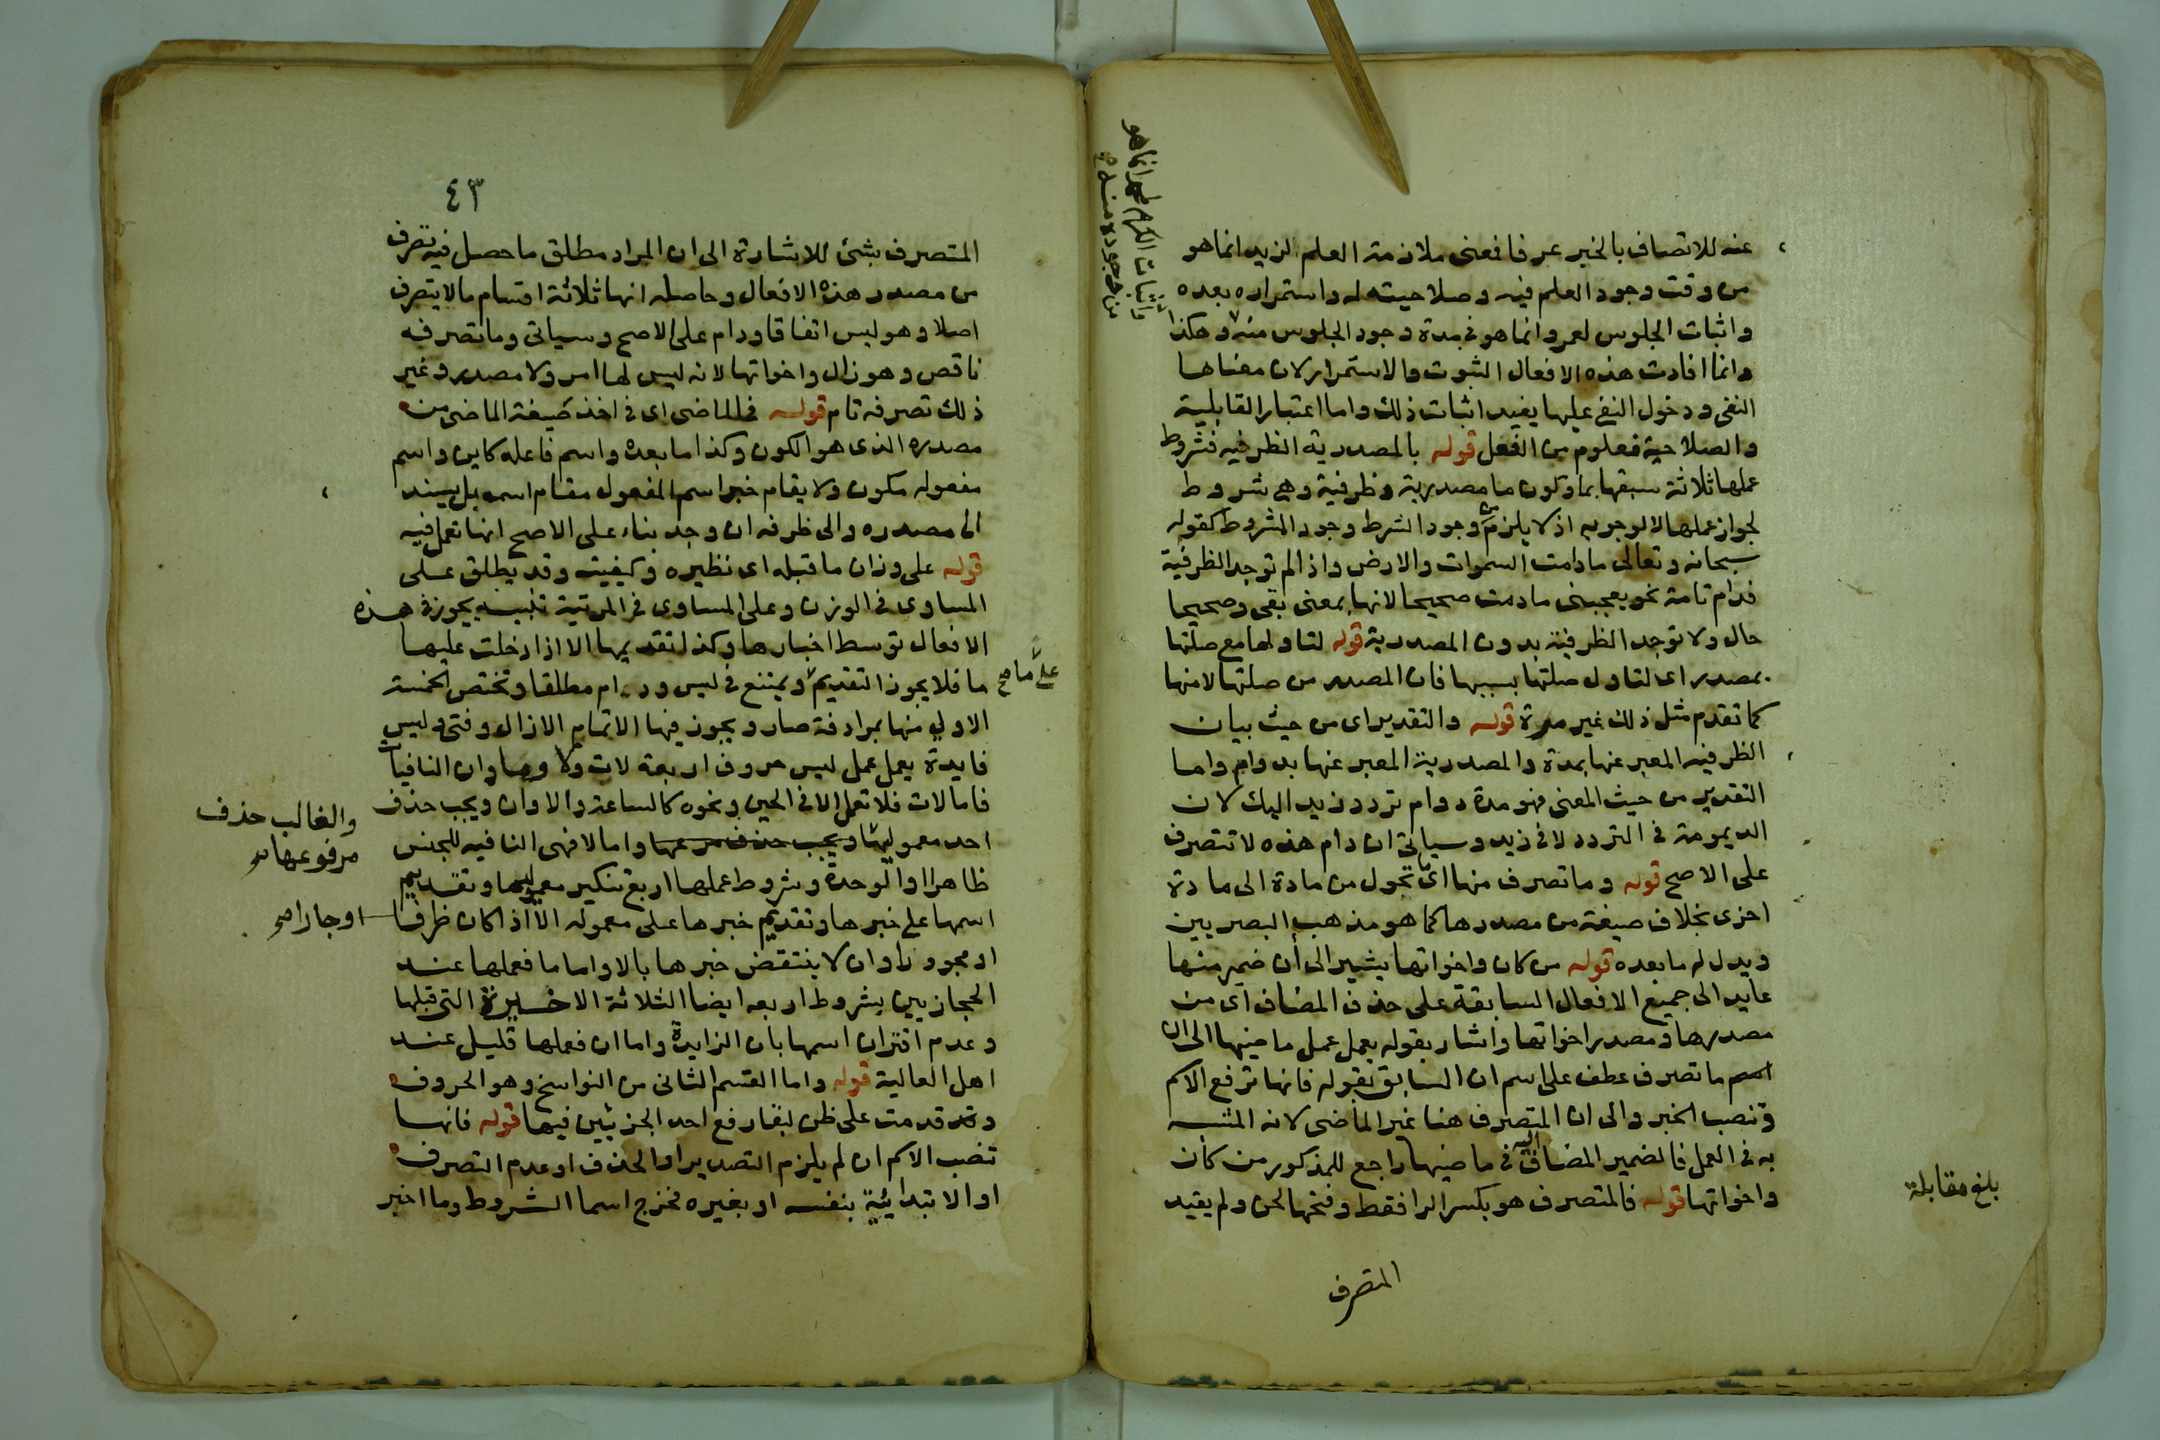 عنه للاتصاف بالخبر عرفا فمعنى ملازمة العلم لزيد انما هو
من وقت وجود العلم فيه وصلاحيته له واستمراره بعده
واثبات الجلوس لعمرو انما هو في مدة وجود الجلوس منه وهكذا
وانما افادت هذه الافعال الثبوت والاستمرار لان معناها
النفى ودخول النفى عليها يفيد اثبات ذلك واما اعتبار القابلية
والصلاحية فمعلوم من الفعل قوله بالمصدرية الظرفيه فشروط
عملها ثلاثة سبقها بما وكون ما مصدرية وظرفية وهى شروط
لجواز عملها لا لوجوبه اذ لا يلزم من وجود الشرط وجود المشروط كقوله
سبحانه وتعالى مادامت السموات والارض واذا لم توجد الظرفية
فدام تامة نحو يعجبنى مادمت صحيحا لانها بمعنى بقى وصحيحا
حال ولا توجد الظرفية بدون المصدرية قوله لتاولها مع صلتها
بمصدر اى لتاول صلتها بسببها فان المصدر من صلتها لا منها
كما تقدم مثل ذلك غير مرة قوله والتقدير اى من حيث بيان
الظرفيه المعبر عنها بمدة والمصدرية المعبر عنها بدوام واما
التقدير من حيث المعنى فهو مدة دوام تردد زيد اليك لان
الديمومة فى التردد لا فى زيد وسياتى ان دام هذه لا تتصرف
على الاصح قوله وما تصرف منها اى تحول من مادة الى مادة
اخرى بخلاف صيغة من مصدرها كما هو مذهب البصريين
ويدل له ما بعده قوله من كان واخواتها يشير الى أن ضمير منها
عايد الى جميع الافعال السابقة على حذف المضاف اى من
مصدرها ومصدر اخواتها واشار بقوله يعمل عمل ماضيها الى ان
اسم ما تصرف عطف على اسم ان السابق بقوله فانها ترفع الاسم
وتنصب الخبر والى ان المتصرف هنا غير الماضى لانه المشبه
به فى العمل فالضمير المضاف اليه فى ماضيها راجع للمذكور من كان
واخواتها قوله فالمتصرف هو بكسر الرا فقط وفتحها لحن ولم يقيد
المتصرف
بلغ مقابلة
واثبات الكرم انما هو
من وجوده منه
٤٣
المتصرف بشئ للاشارة الى ان المراد مطلق ما حصل فيه تصرف
من مصدر هذه الافعال وحاصله انها ثلاثة اقسام ما لا يتصرف
اصلا وهو ليس اتفاقا ودام على الاصح وسياتى وما تصرفه
ناقص وهو زال واخواتها لانه ليس لها امر ولا مصدر وغير
ذلك تصرفه تام قوله فى الماضى اى فى اخذ صيغة الماضى من
مصدره الذى هو الكون وكذا ما بعده واسم فاعله كاين واسم
مفعوله مكون ولا يقام خبر اسم المفعول مقام اسمه بل يسند
الى مصدره والى ظرفه ان وجد بناء على الاصح انها تعمل فيه
قوله على وزان ما قبله اى نظيره وكيفيت وقد يطلق على
المساوى فى الوزن وعلى المساوى فى المرتبة تنبيه يجوز فى هذه
الافعال توسط اخبارها وكذا تقديمها الا اذا دخلت عليها
ما فلا يجوز التقديم ويمتنع فى ليس ودام مطلقا وتختص الخمسة
على ما صح
الاولى منها بمرادفة صار ويجوز فيها الاتمام الا زال وفتى وليس
فايدة يعمل عمل ليس حروف اربعة لات ولا وما وان النافيات
فاما لات فلا تعمل الا فى الحين ونحوه كالساعة والاوان ويجب حذف
احد معموليها ويجب حذف مرفوعها واما لا فهى النافيه للجنس
والغالب حذف
مرفوعها صح
ظاهرا والوحدة وشروط عملها اربع تنكير معموليها وتقديم
اسمها على خبرها وتقديم خبرها على معموله الا اذا كان ظرفا
او جارا صح
او مجرورا وان لا ينتقض خبرها بالا واما ما فعملها عند
الحجازيين بشروط اربعه ايضا الثلاثة الاخيرة التى قبلها
وعدم اقتران اسمها بان الزايدة واما ان فعملها قليل عند
اهل العالية قوله واما القسم الثانى من النواسخ وهو الحروف
وقد قدمت على ظن لبقا رفع احد الجزئين فيها قوله فانها
تنصب الاسم ان لم يلزم التصدير او الحذف او عدم التصرف
او الابتدائية بنفسه او بغيره فخرج اسما الشروط وما اخبر